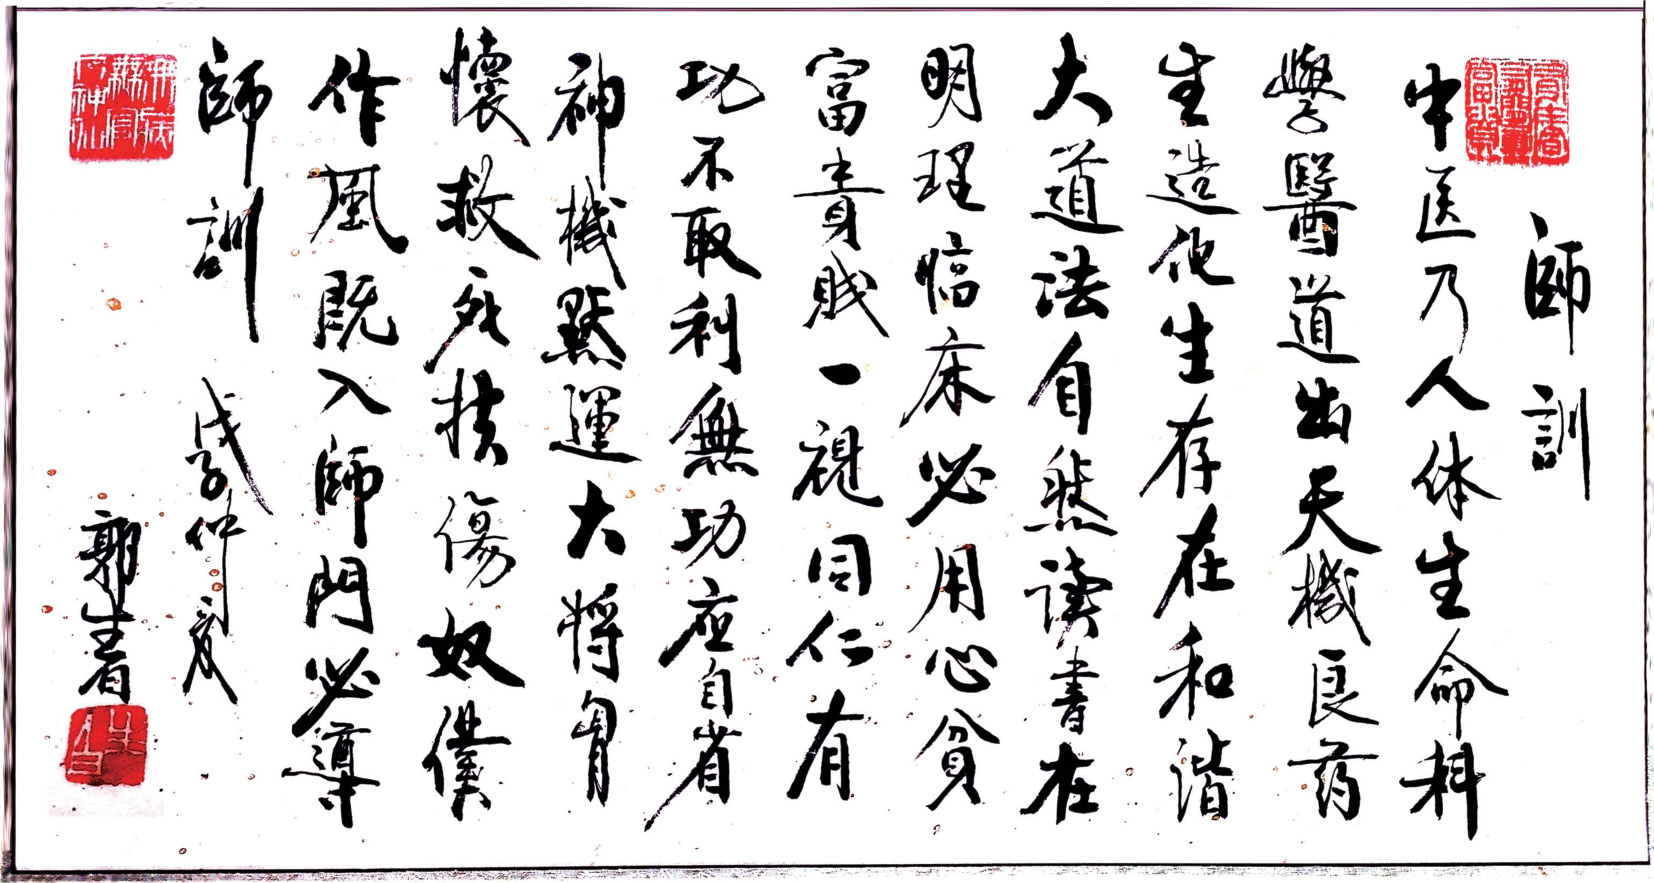 師訓
中医乃人体生命科
學醫道出天機良药
生造化生存在和谐
大道法自然读書在
明理临床必用心贫
富貴賤一視同仁有
功不取利無功应自省
神機點運大将胸
懷救死扶傷奴僕
作風既入師門必遵
師訓
戊子仲夏
郭生春